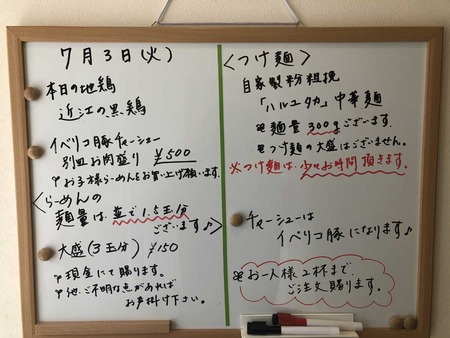 7月3日(火)
本日の地鶏
近江の黒鶏
イベリコ豚チャーシュー
別皿お肉盛り ¥500
お子様らーめんをお買い上げ願います。
〈らーめんの
麺量は並で1.5玉分
ございます♪〉
大盛(3玉分) ¥150
現金にて賜ります。
他、ご不明な点があれば
お声掛け下さい。
〈つけ麺〉
自家製粉粗挽
「ハルユタカ」中華麺
麺量300gございます。
つけ麺の大盛はございません。
※つけ麺は、少々お時間頂きます。
チャーシューは
イベリコ豚になります♪
お一人様2杯まで、
ご注文賜ります。